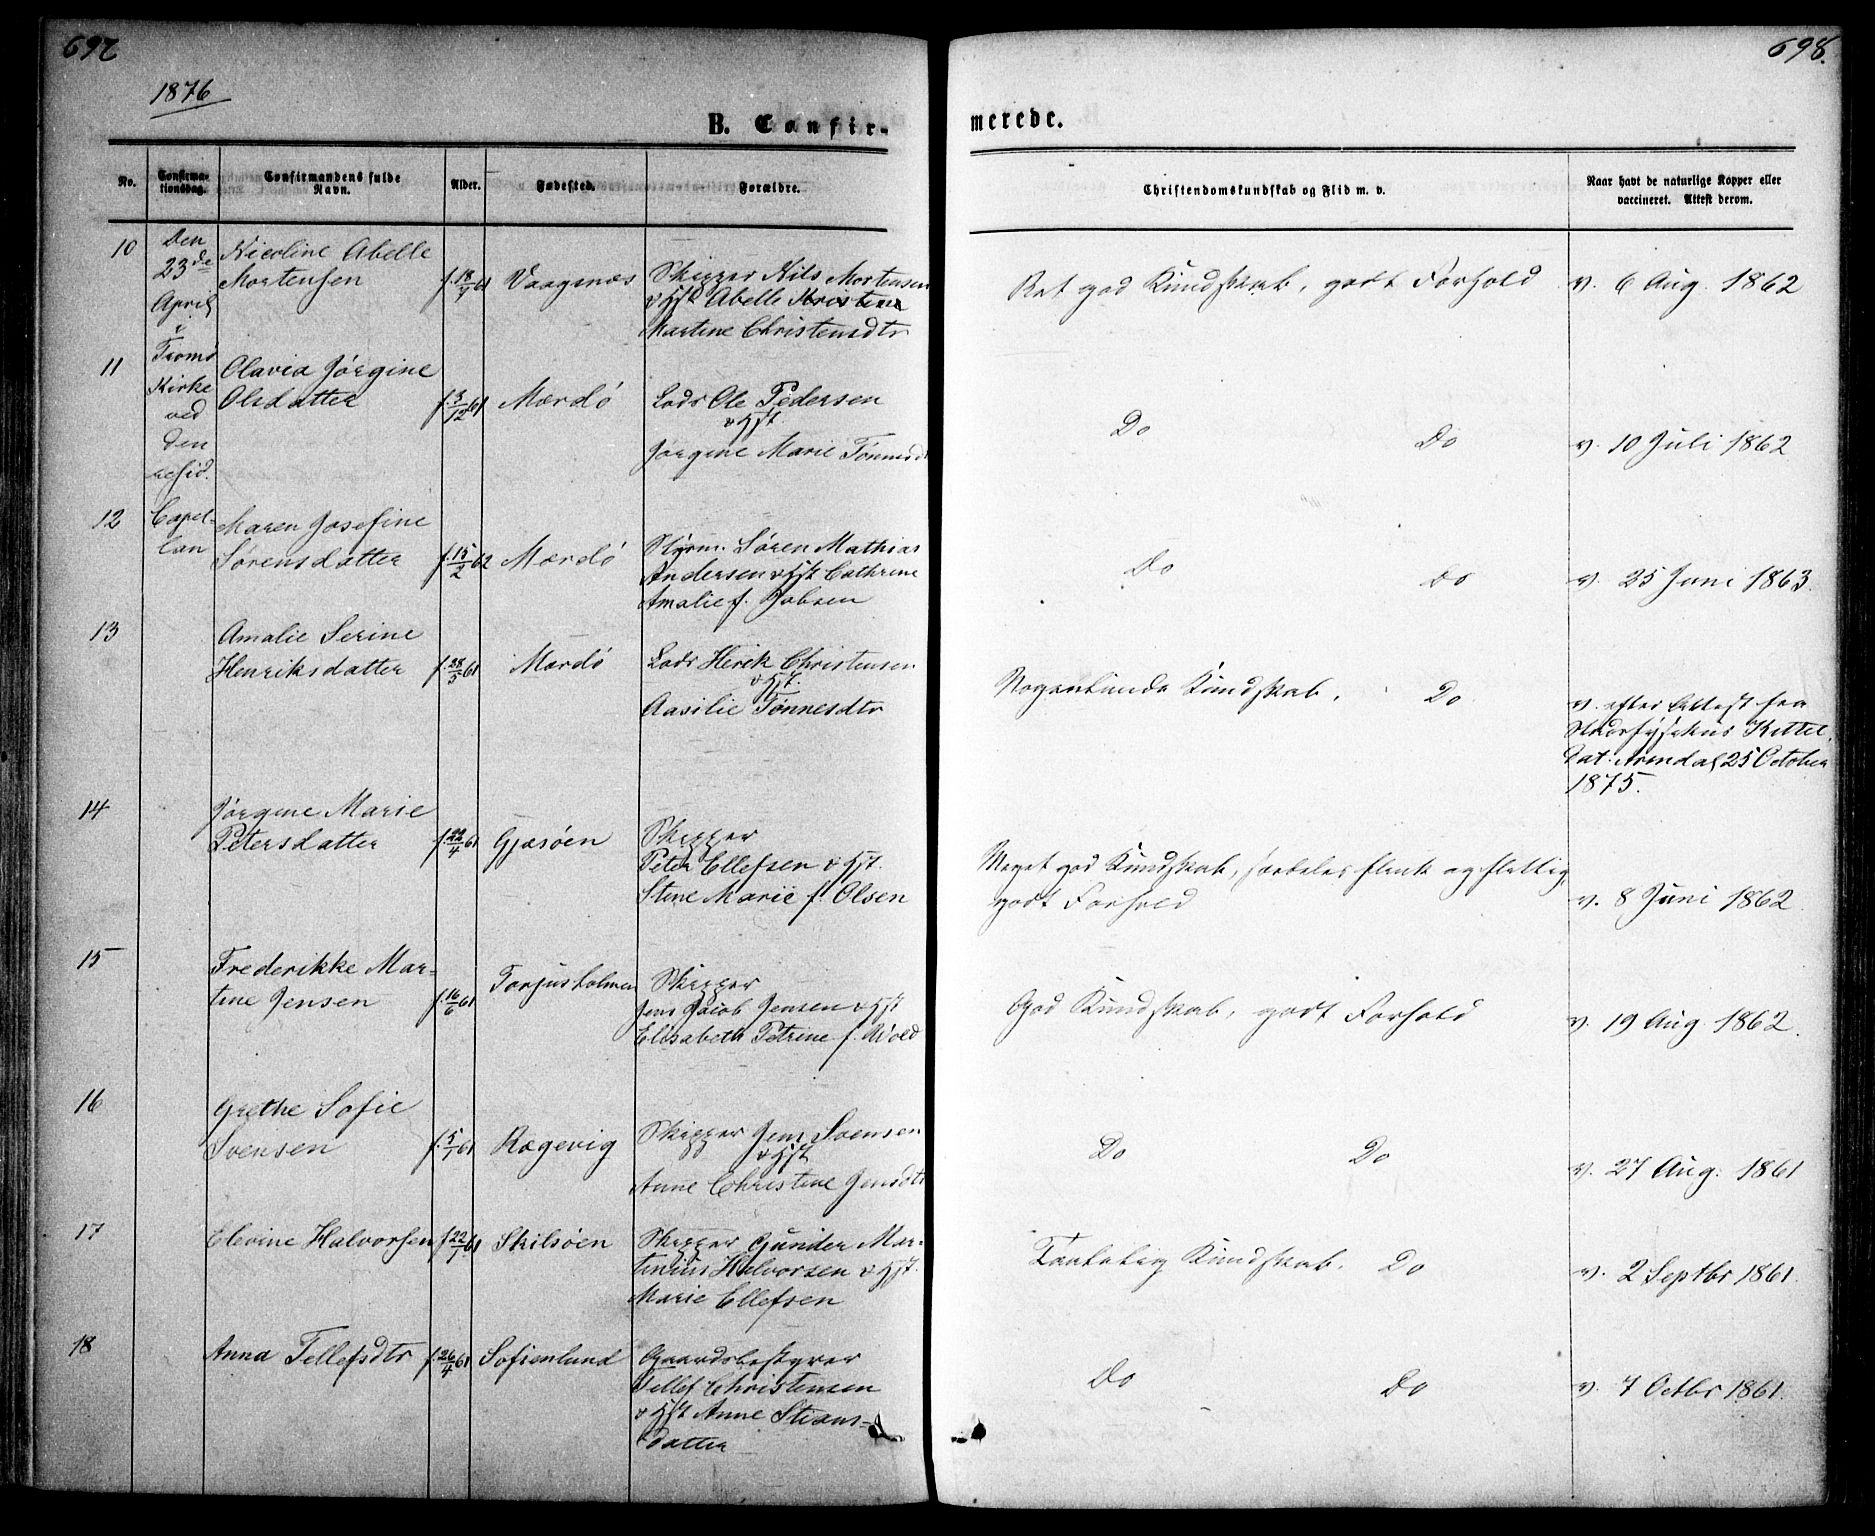 697
698.
1876
B. Confir-
merede.
No.
Confirma-
tionsdag.
Confirmandens fulde
Navn.
Alder.
Fødested.
Forældre.
Christendomskundskab og Flid m. v.
Naar havt de naturlige Kopper eller
vaccineret. Attest derom.
Den
23de
April
i
Tromø
Kirke
ved
den
resid.
Capel-
lan
10
Nicoline Abelle
Mortensen
f. 18/7 61
Vaagsnæs
Skipper Nils Mortensen
& Hst Abelle
Martine Christensdtr
Ret god Kundskab, godt Forhold
v. 6 Aug. 1862
11
Olavia Jørgine
Olsdatter
f. 3/12 61
Mærdø
Lods Ole Pedersen
& Hst
Jørgine Marie Tønnesd
Do
Do
v. 10 Juli 1862
12
Maren Josefine
Sørensdatter
f. 15/2 62
Mærdø
Styrm. Søren Mathias
Andersen & Hst Cathrine
Amalie f. Jobsen
Do
Do
v. 25 Juni 1863
13
Amalie Serine
Henriksdatter
f. 28/5 61
Mærdø
Lods Henrik Christensen
& Hst.
Aasilie Tønnesdtr
Nogenlunde Kundskab,
Do
v. efter Attest fra
Stadsfysikus Kittel,
Dat. Arendal 25 October
1875.
14
Jørgine Marie
Petersdatter
f. 22/4 61
Gjæsøen
Skipper
Peter Ellefsen & Hst.
Stine Marie f. Olsen
Meget god Kundskab, særdeles flink og flittig,
godt Forhold
v. 8 Juni 1862
15
Frederikke Mar-
tine Jensen
f. 16/6 61
Torjusholmen
Skipper
Jens Jacob Jensen & Hst
Elisabeth Petrine f. Awold
God Kundskab, godt Forhold
v. 19 Aug. 1862.
16
Grethe Sofie
Svensen
f. 5/1 61
Rægevig
Skipper Jens Svensen
& Hst
Anne Christine Jensdtr
Do
Do
v. 27 Aug. 1861
17
Elevine Halvorsen
f. 22/7 61
Skilsøen
Skipper Gunder Mar-
tinius Halvorsen & Hst.
Marie Ellefsen
Taalelig Kundskab.
Do
v. 2 Septbr 1861.
18
Anna Tellefsdtr
f. 26/4 61
Sofienlund
Gaardsbestyrer
Tellef Christensen
& Hst Anne Stians-
datter
Do
Do
v. 7 Octbr 1861.